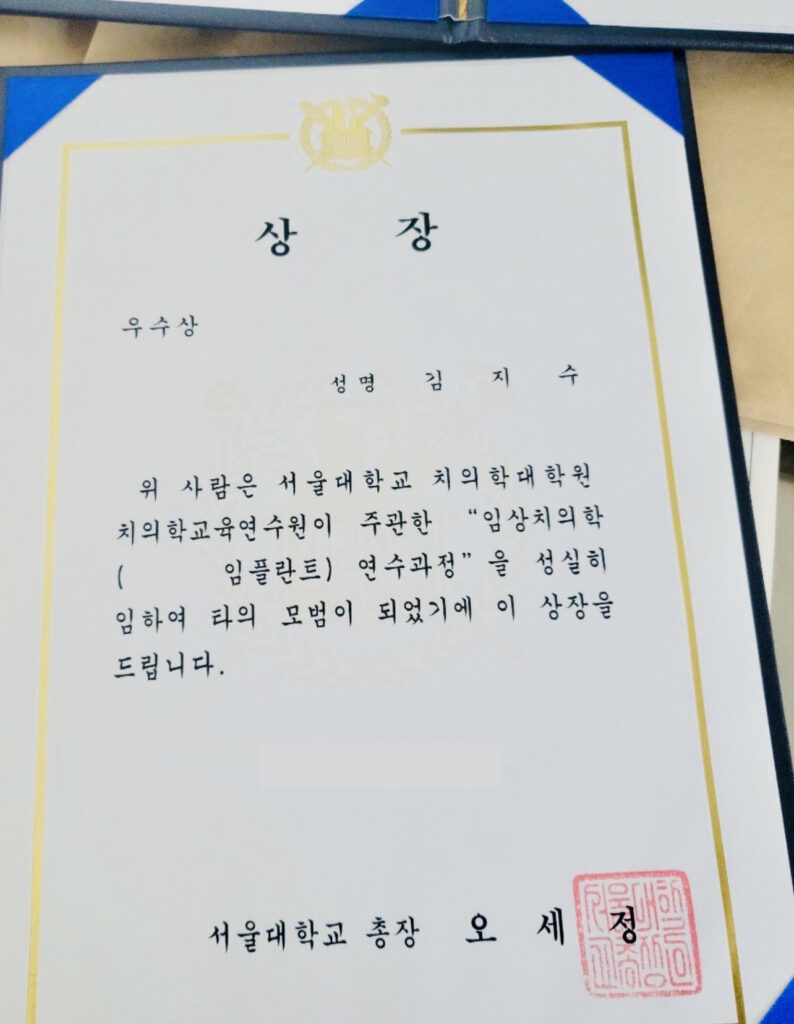 상 장
우수상
성명 김 지 수
위 사람은 서울대학교 치의학대학원
치의학교육연수원이 주관한 “임상치의학
( 임플란트) 연수과정”을 성실히
임하여 타의 모범이 되었기에 이 상장을
드립니다.
서울대학교 총장 오 세 정